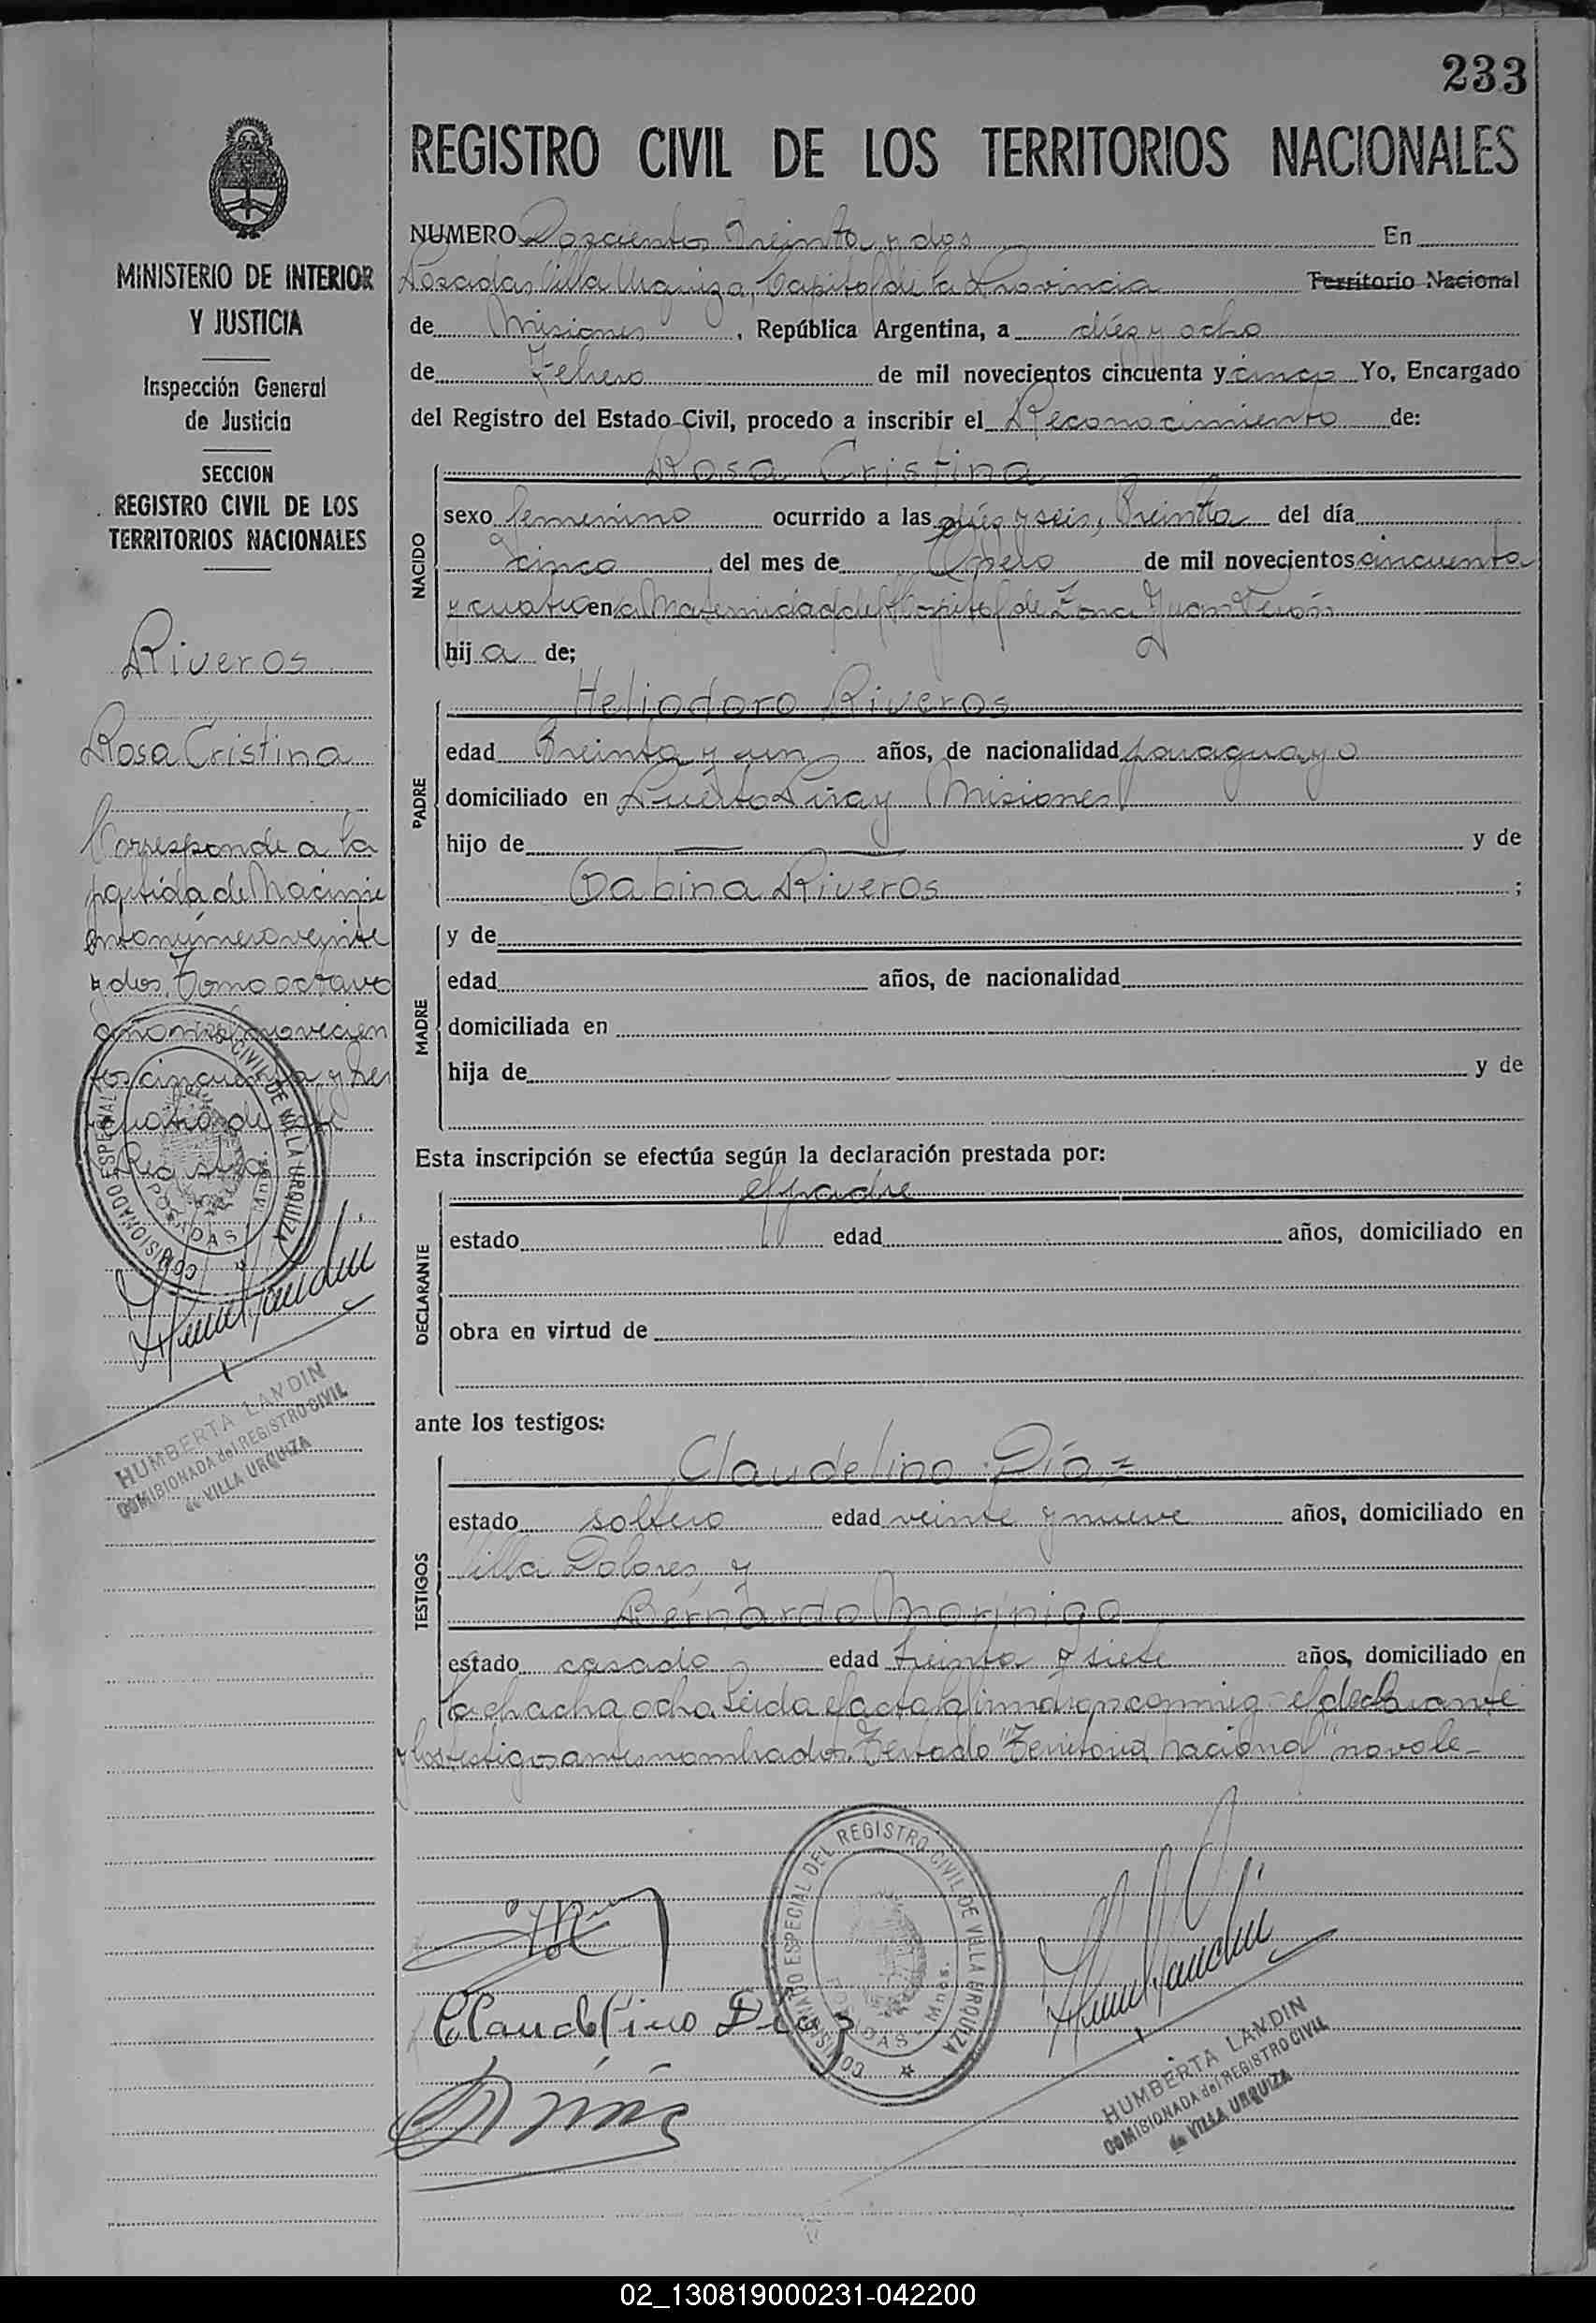 233
REGISTRO CIVIL DE LOS TERRITORIOS NACIONALES
MINISTERIO DE INTERIOR
Y JUSTICIA
Inspección General
de Justicia
SECCION
REGISTRO CIVIL DE LOS
TERRITORIOS NACIONALES
Riveros
Rosa Cristina
Corresponde a la
partida de Nacimie
nto número veinte
y dos, Tomo octavo
año mil novecien
tos cincuenta y
cuatro de
Registro
COMISIONADO ESPECIAL CIVIL DE VILLA URQUIZA
POSADAS Mnes.
HUMBERTA LANDIN
COMISIONADA del REGISTRO CIVIL
de VILLA URQUIZA
NUMERO Doscientos Treinta y dos En
Posadas Villa Urquiza, Capital de la Provincia Territorio Nacional
de Misiones, República Argentina, a diez y ocho
de Febrero de mil novecientos cincuenta y cinco Yo, Encargado
del Registro del Estado Civil, procedo a inscribir el Reconocimiento de:
NACIDO
Rosa Cristina
sexo femenino ocurrido a las diez y seis, Treinta del día
cinco del mes de Enero de mil novecientos cincuenta
y cuatro en la Maternidad del Hospital de Zona Juan Perón
hija de;
PADRE
Heliodoro Riveros
edad Treinta y un años, de nacionalidad paraguayo
domiciliado en Puerto Piray Misiones
hijo de y de
Sabina Riveros ;
MADRE
y de
edad años, de nacionalidad
domiciliada en
hija de y de
Esta inscripción se efectúa según la declaración prestada por:
DECLARANTE
el padre
estado edad años, domiciliado en
obra en virtud de
ante los testigos:
TESTIGOS
Claudelino Díaz
estado soltero edad veinte y nueve años, domiciliado en
Villa Dolores y
Bernardo Morínigo
estado casado edad treinta y siete años, domiciliado en
la chacha ocho. Leida el acta la firmaron conmigo el declarante
y los testigos antes nombrados. Testado "Territorio nacional" no vale-
COMISIONADO ESPECIAL DEL REGISTRO CIVIL DE VILLA URQUIZA
POSADAS Mnes.
Claudelino Díaz
HUMBERTA LANDIN
COMISIONADA del REGISTRO CIVIL
de VILLA URQUIZA
02_130819000231-042200